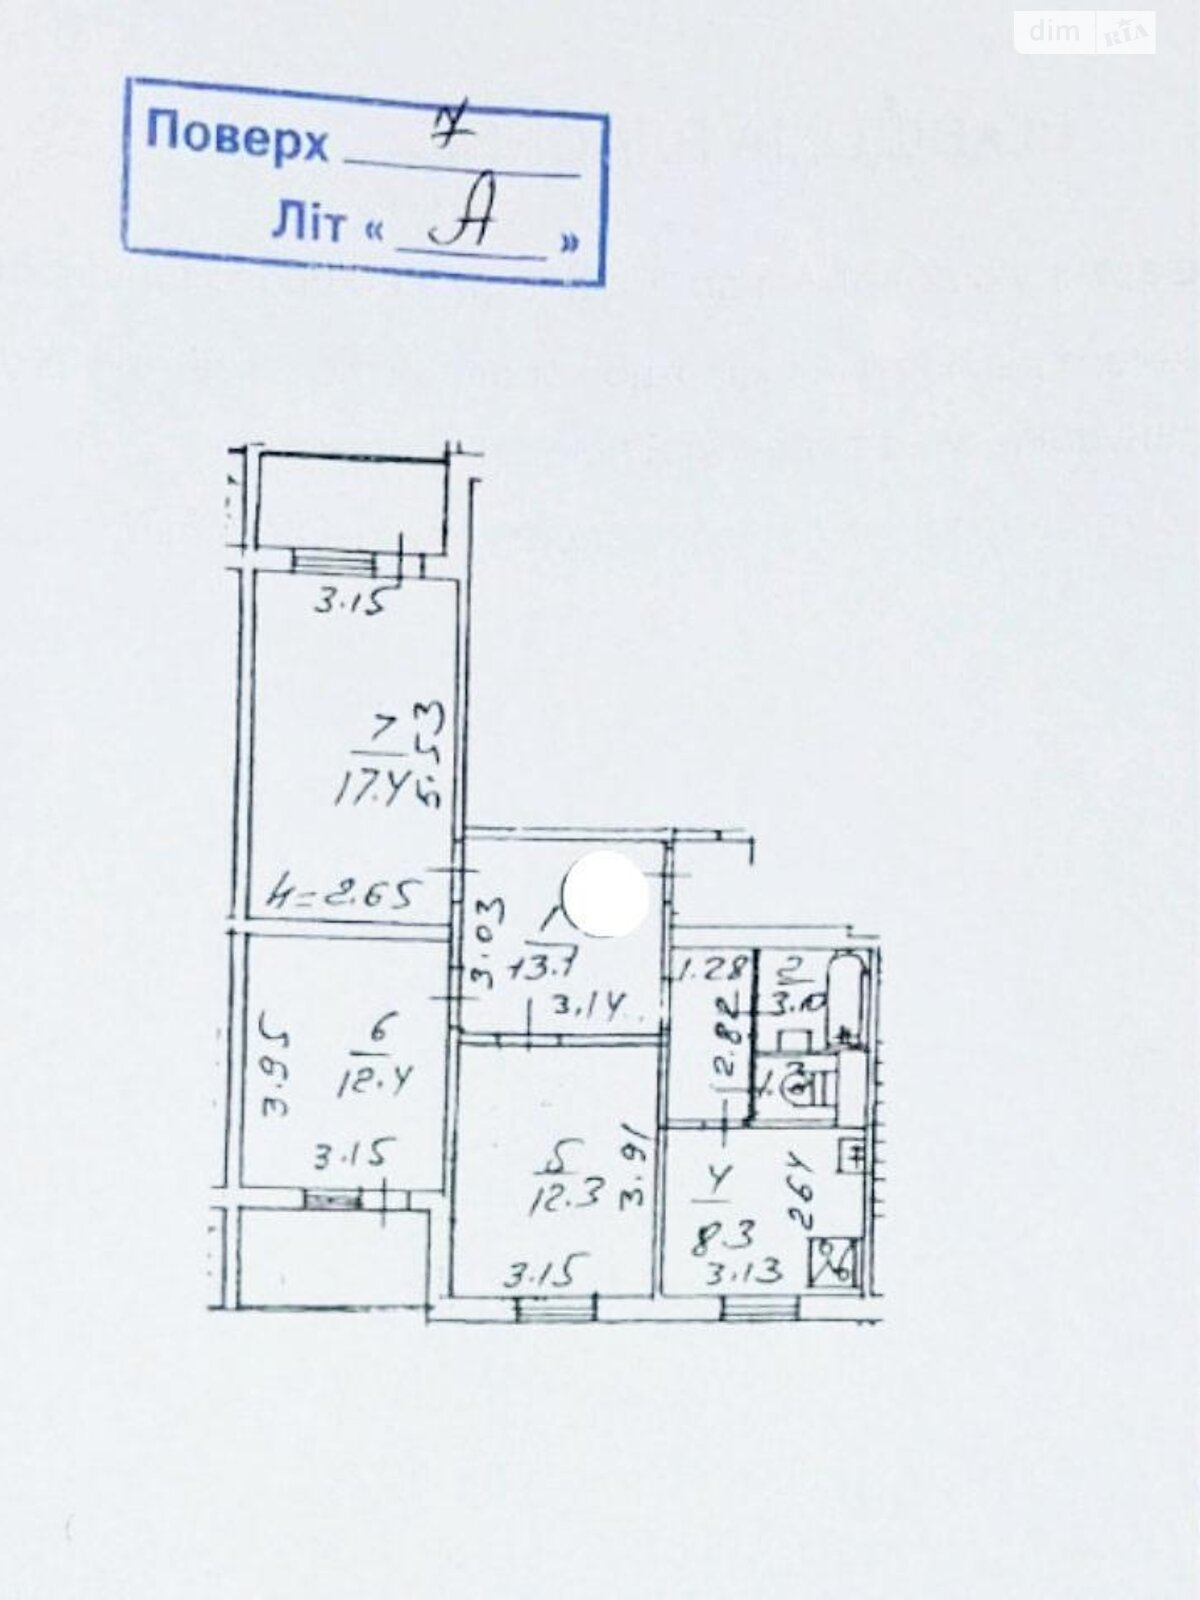 dim RIA
Поверх 7
Літ « А »
3.15
7
17.4
5.53
H=2.65
3.03
1
13.7
3.14
1.28
2
3.10
2.82
1.3
6
12.4
3.95
3.15
5
12.3
3.91
3.15
4
8.3
2.64
3.13